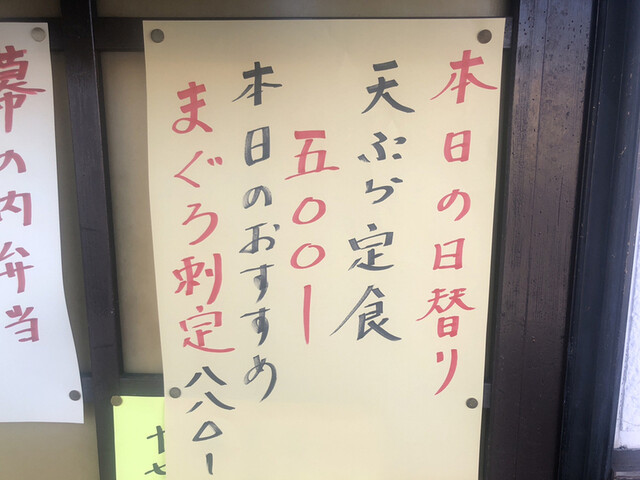 本日の日替り
天ぷら定食
五〇〇ー
本日のおすすめ
まぐろ刺定八八〇ー
幕の内弁当
十